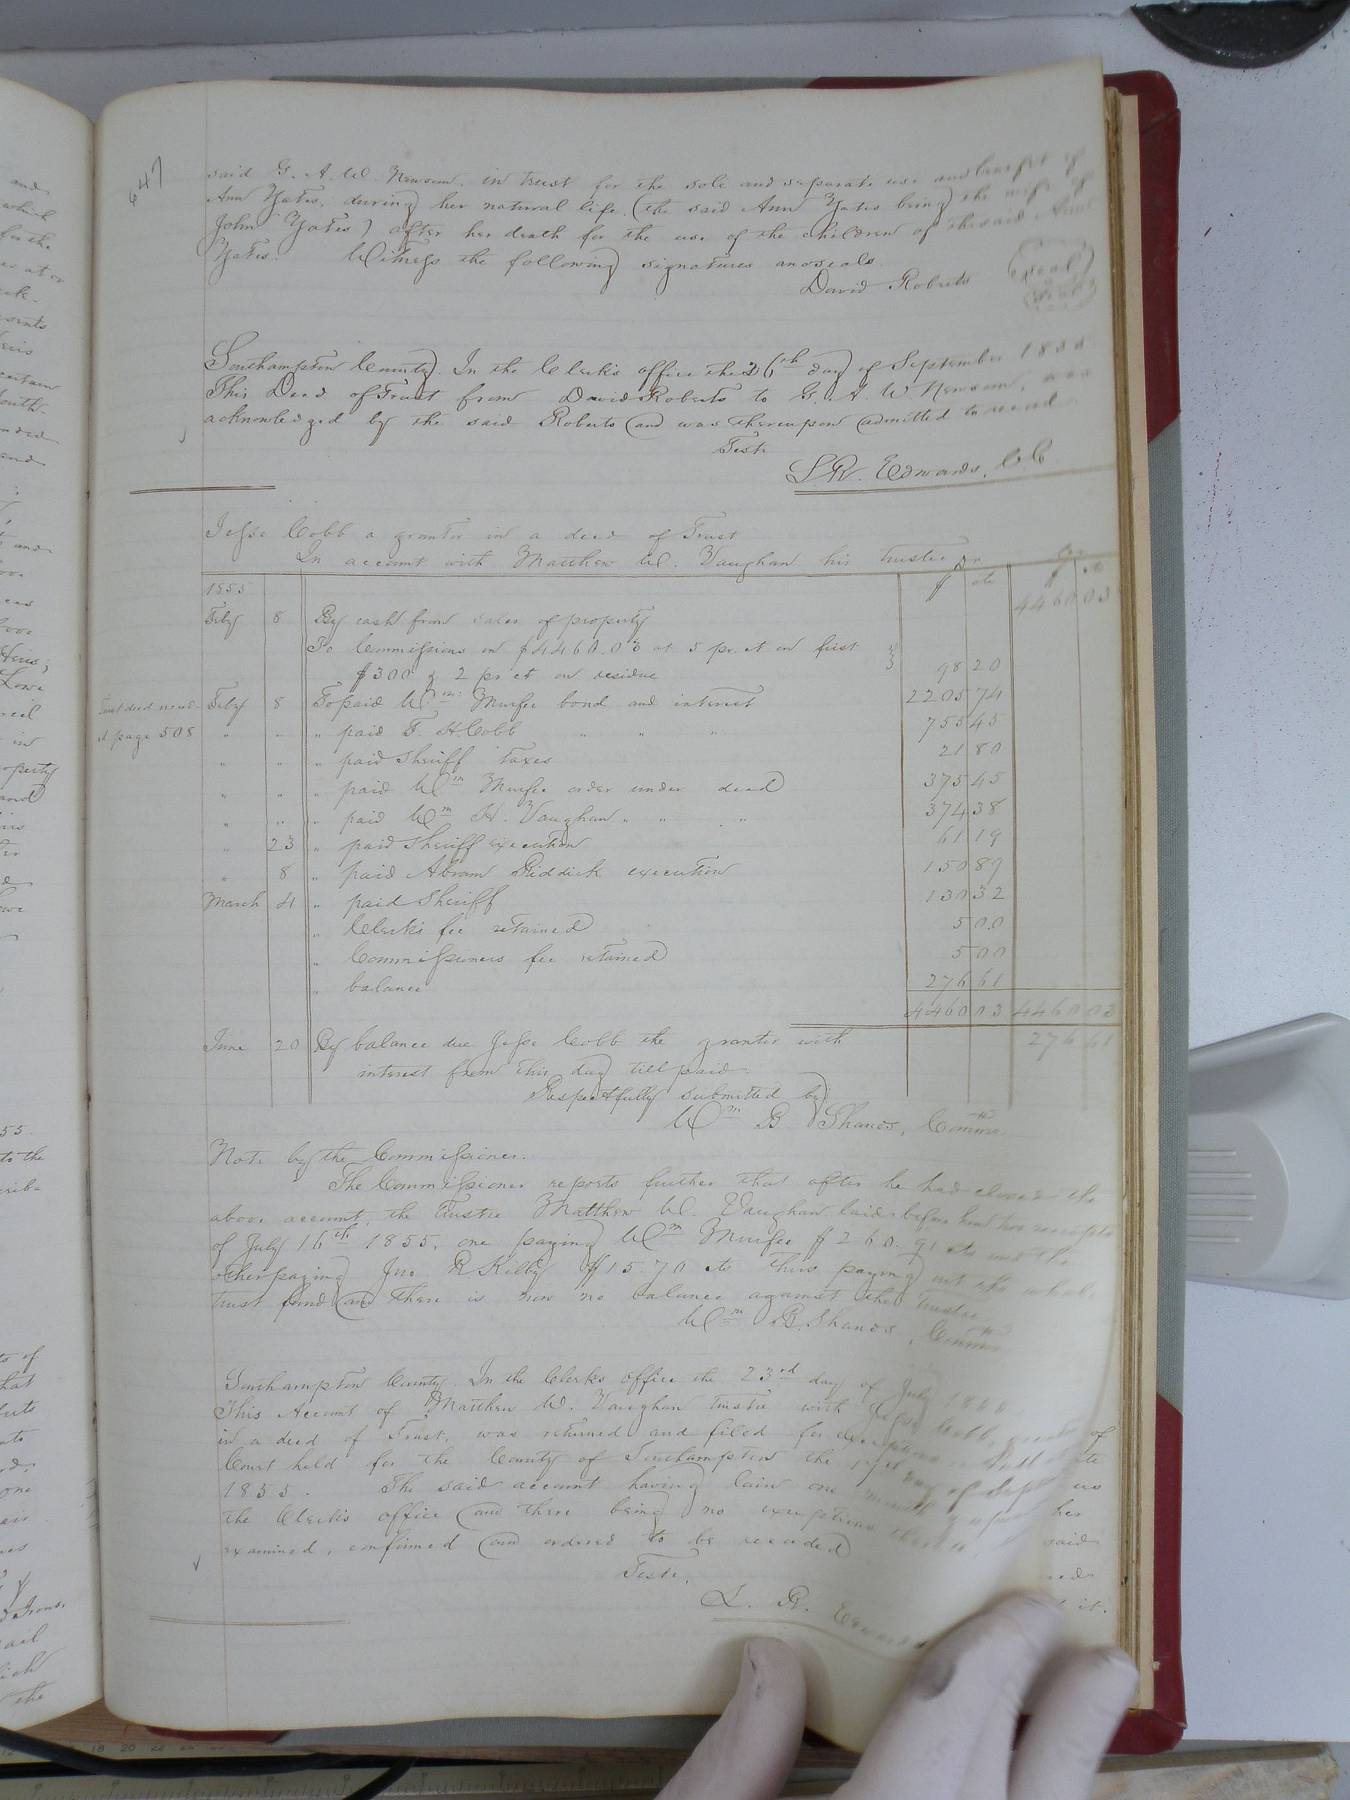 647
said G. A. W. Newsom. in trust for the sole and separate use and benefit of
Ann Yates, during her natural life, (the said Ann Yates being the wife of
John Yates) after her death for the use of the children of the said Ann
Yates. Witness the following signatures and seals.
David Roberts Seal
Seal
Southampton County. In the Clerk's office the 26th day of September 1855
This Deed of Trust from David Roberts to G. A. W. Newsom, was
acknowledged by the said Roberts and was thereupon admitted to record
Teste
L. R. Edwards, C. C.
Jesse Cobb a grantor in a deed of Trust
In account with Matthew W. Vaughan his trustee Dr Cr
1855 $ cts $ cts
Feby 8 By cash from sales of property 4460 03
To Commissions on $4460.03 at 5 pr. ct on first
$300 & 2 pr ct on residue 98 20
Trust deed record- Feby 8 To paid Wm Murfee bond and interest 2205 74
d page 508 " " " paid F. H Cobb " " " 755 45
" " " paid Sheriff taxes 21 80
" " " paid Wm Murfee order under deed 375 45
" " " paid Wm H. Vaughan " " " " 374 38
" 23 " paid Sheriff execution 61 19
" 8 " paid Abram Riddick execution 150 89
March 4 " paid Sheriff 130 32
" Clerks fee retained 5 00
" Commissioners fee retained 5 00
" balance 276 61
4460 03 4460 03
June 20 By balance due Jesse Cobb the grantor with 276 61
interest from this day till paid.
Respectfully submitted by
Wm B. Shands, Commr
Note by the Commissioner.
The Commissioner reports further that after he had closed the
above account, the trustee Matthew W. Vaughan laid before him two receipts
of July 16th 1855, one paying Wm Murfee $260.91 cts and the
other paying Jno R Kilby $15.70 cts thus paying out the whole
trust fund and there is now no balance against the trustee.
Wm B. Shands, Commr
Southampton County. In the Clerks office the 23rd day of July 1855
This Account of Matthew W. Vaughan trustee with Jesse Cobb, grantor
in a deed of Trust, was returned and filed for exceptions
Court held for the County of Southampton the 17th day of Sept
1855. The said account having lain one month
the Clerk's office and there being no exceptions thereto
examined, confirmed and ordered to be recorded
Teste,
L. R. Edwards